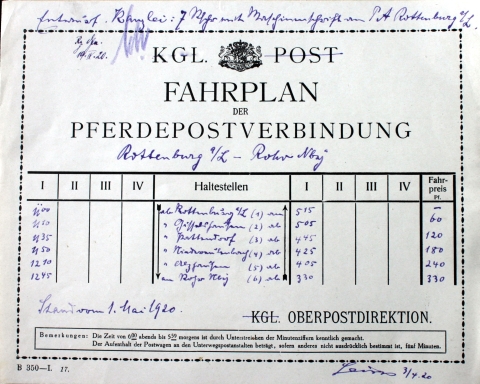 Entwurf. Kanzlei: 7 Stück mit Maschinenschrift an P.A. Rottenburg a/L.
KGL. POST
FAHRPLAN
DER
PFERDEPOSTVERBINDUNG
Rottenburg a/L – Rohr Nby
I II III IV Haltestellen I II III IV Fahrpreis Pf.
11 00 ab Rottenburg a/L (1) an 5 15 –
11 10 " Gisseltshausen (2) ab 5 05 60
11 35 " Pattendorf (3) ab 4 45 120
11 50 " Niedereulenbach (4) ab 4 25 180
12 10 " (5) ab 4 05 240
12 45 an Rohr Nby (6) ab 3 30 330
Stand vom 1. Mai 1920.
KGL. OBERPOSTDIREKTION.
Bemerkungen: Die Zeit von 6 00 abends bis 5 59 morgens ist durch Unterstreichen der Minutenziffern kenntlich gemacht.
Der Aufenthalt der Postwagen an den Unterwegspostanstalten beträgt, sofern anderes nicht ausdrücklich bestimmt ist, fünf Minuten.
B 350—I. 17.
3/4.20